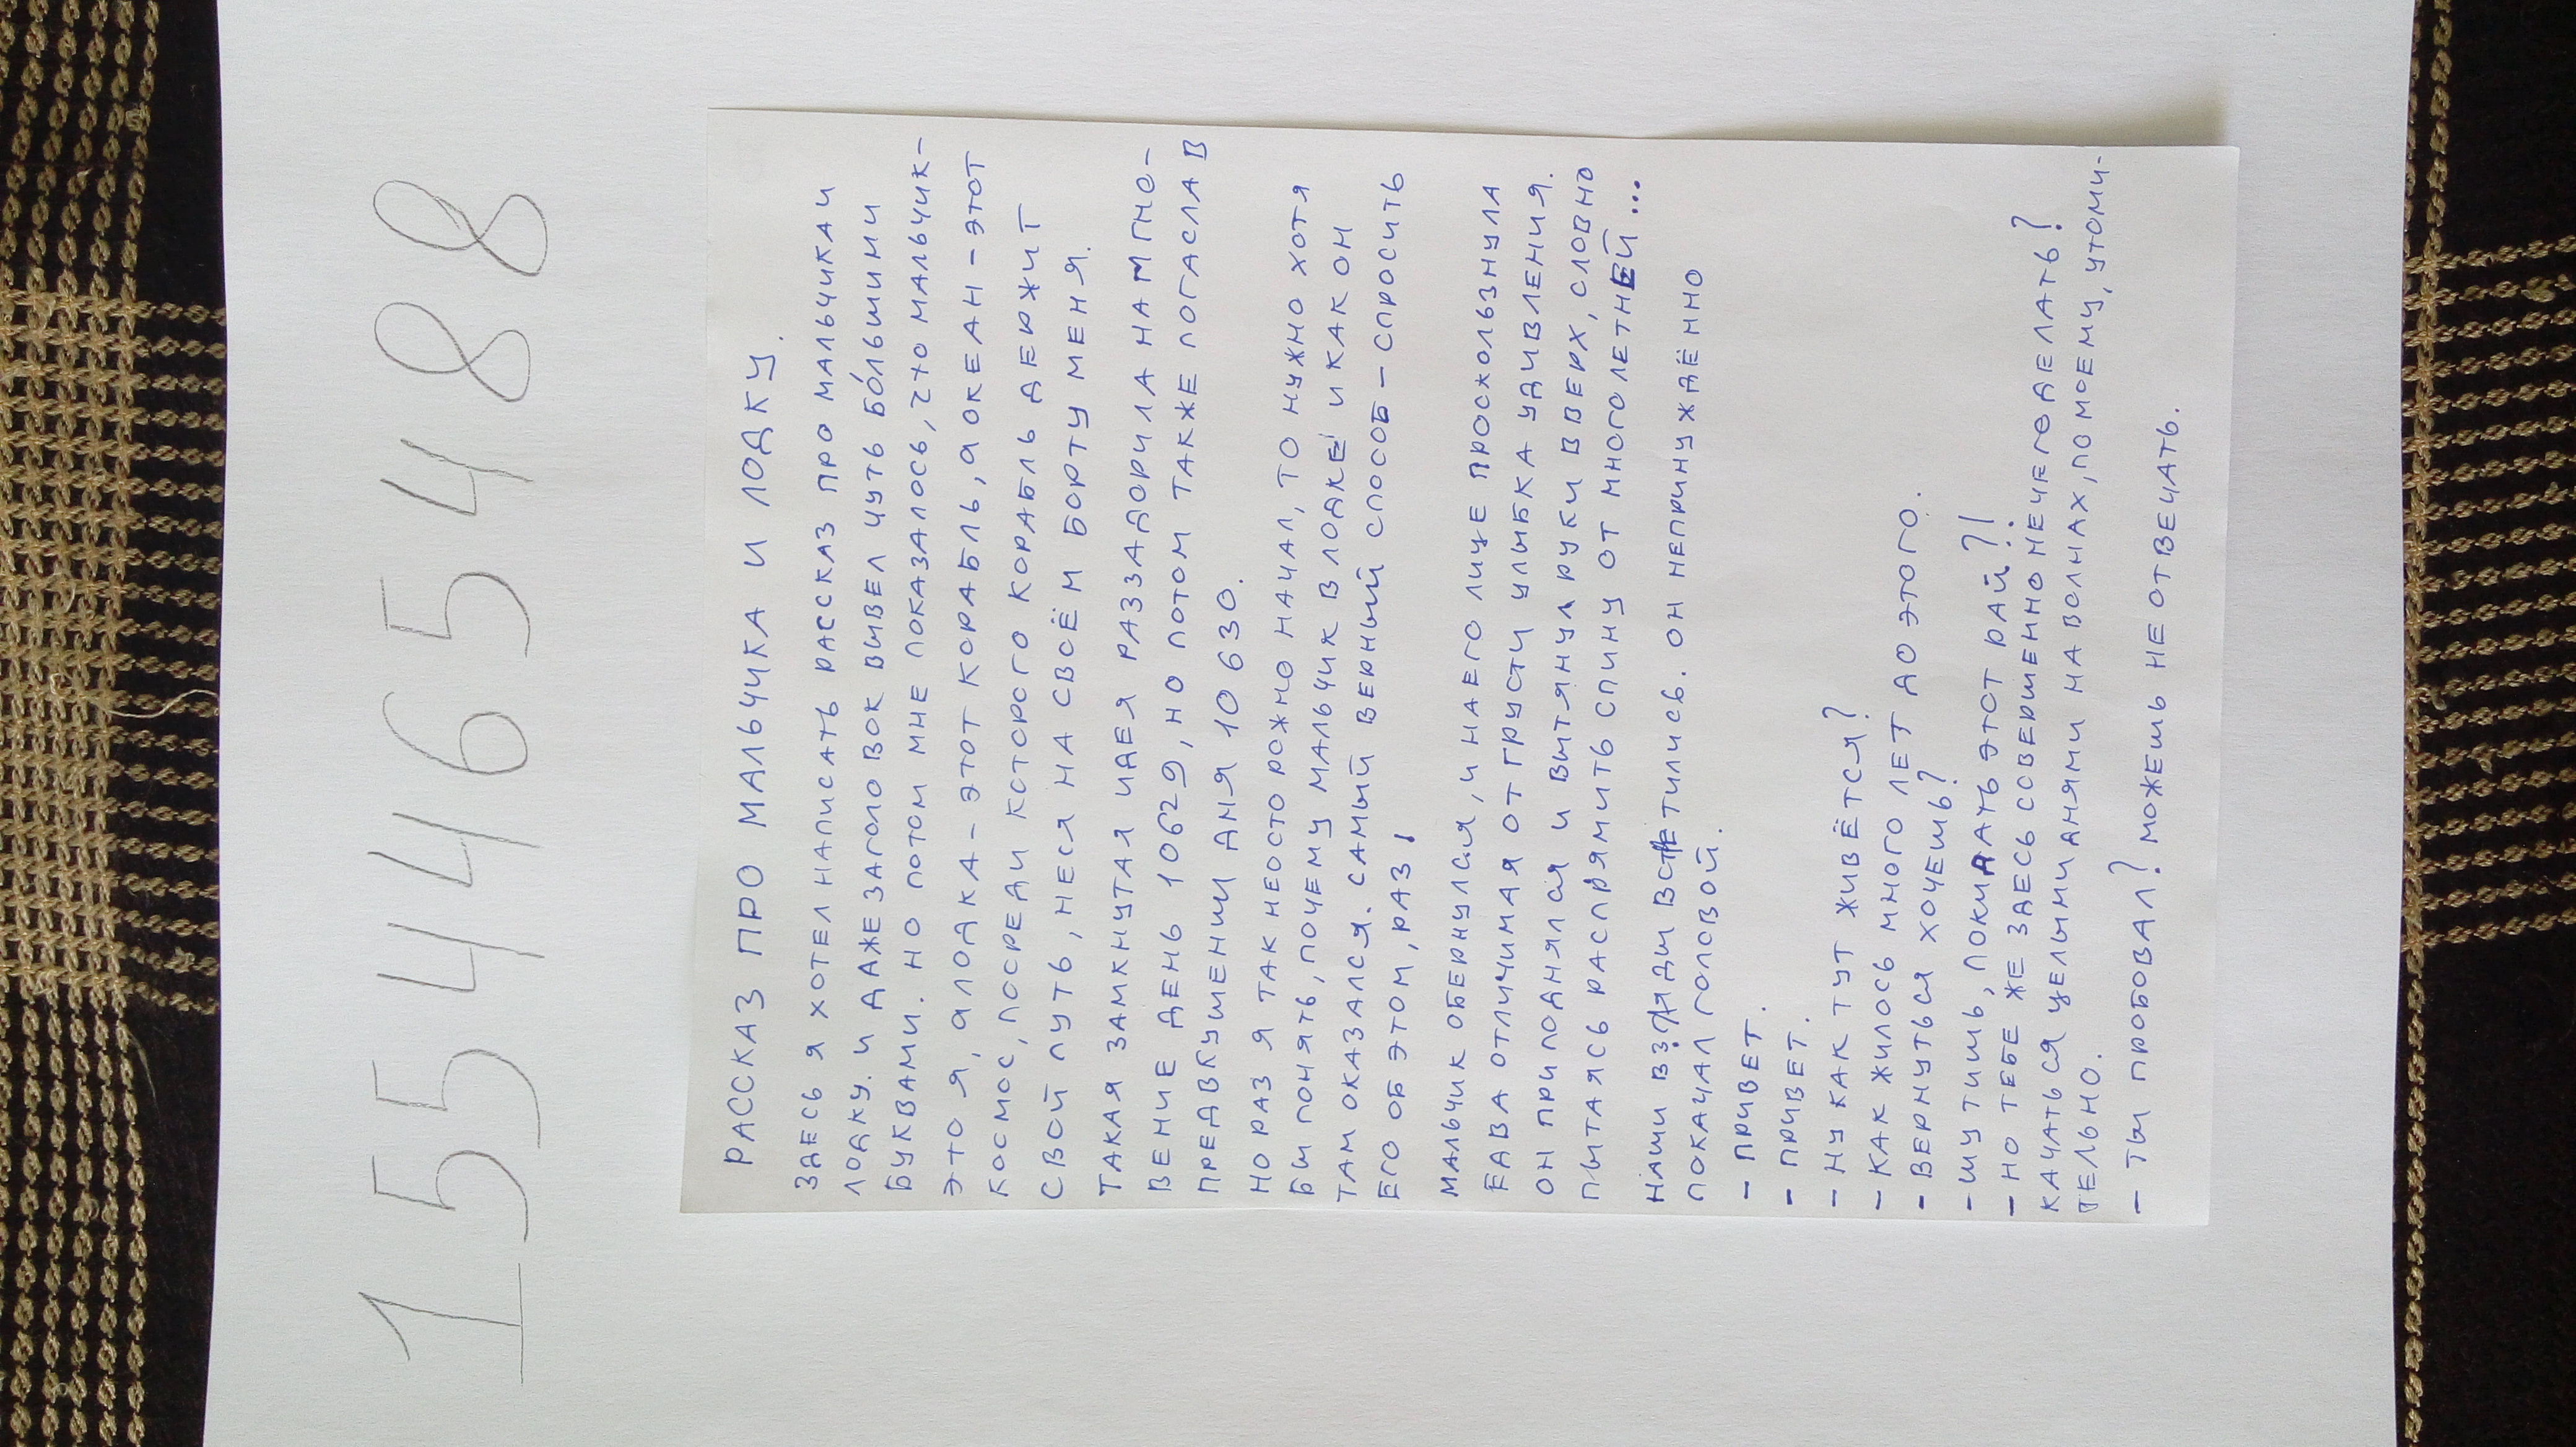 155446548 8
РАССКАЗ ПРО МАЛЬЧИКА И ЛОДКУ.
ЗДЕСЬ Я ХОТЕЛ НАПИСАТЬ РАССКАЗ ПРО МАЛЬЧИКА И
ЛОДКУ. И ДАЖЕ ЗАГОЛОВОК ВЫВЕЛ ЧУТЬ БО́ЛЬШИМИ
БУКВАМИ. НО ПОТОМ МНЕ ПОКАЗАЛОСЬ, ЧТО МАЛЬЧИК-
ЭТО Я, А ЛОДКА - ЭТОТ КОРАБЛЬ, А ОКЕАН - ЭТОТ
КОСМОС, ПОСРЕДИ КОТОРОГО КОРАБЛЬ ДЕРЖИТ
СВОЙ ПУТЬ, НЕСЯ НА СВОЁМ БОРТУ МЕНЯ.
ТАКАЯ ЗАМКНУТАЯ ИДЕЯ РАЗЗАДОРИЛА НА МГНО-
ВЕНИЕ ДЕНЬ 10629, НО ПОТОМ ТАКЖЕ ПОГАСЛА В
ПРЕДВКУШЕНИИ ДНЯ 10630.
НО РАЗ Я ТАК НЕОСТОРОЖНО НАЧАЛ, ТО НУЖНО ХОТЯ
БЫ ПОНЯТЬ, ПОЧЕМУ МАЛЬЧИК В ЛОДКЕ И КАК ОН
ТАМ ОКАЗАЛСЯ. САМЫЙ ВЕРНЫЙ СПОСОБ - СПРОСИТЬ
ЕГО ОБ ЭТОМ, РАЗ!
МАЛЬЧИК ОБЕРНУЛСЯ, И НА ЕГО ЛИЦЕ ПРОСКОЛЬЗНУЛА
ЕДВА ОТЛИЧИМАЯ ОТ ГРУСТИ УЛЫБКА УДИВЛЕНИЯ.
ОН ПРИПОДНЯЛСЯ И ВЫТЯНУЛ РУКИ ВВЕРХ, СЛОВНО
ПЫТАЯСЬ РАСПРЯМИТЬ СПИНУ ОТ МНОГОЛЕТНЕЙ...
НАШИ ВЗГЛЯДЫ ВСТРЕТИЛИСЬ. ОН НЕПРИНУЖДЁННО
ПОКАЧАЛ ГОЛОВОЙ.
- ПРИВЕТ.
- ПРИВЕТ.
- НУ КАК ТУТ ЖИВЁТСЯ?
- КАК ЖИЛОСЬ МНОГО ЛЕТ ДО ЭТОГО.
- ВЕРНУТЬСЯ ХОЧЕШЬ?
- ШУТИШЬ, ПОКИДАТЬ ЭТОТ РАЙ?!
- НО ТЕБЕ ЖЕ ЗДЕСЬ СОВЕРШЕННО НЕЧЕГО ДЕЛАТЬ?
КАЧАТЬСЯ ЦЕЛЫМИ ДНЯМИ НА ВОЛНАХ, ПО МОЕМУ, УТОМИ-
ТЕЛЬНО.
- ТЫ ПРОБОВАЛ? МОЖЕШЬ НЕ ОТВЕЧАТЬ.